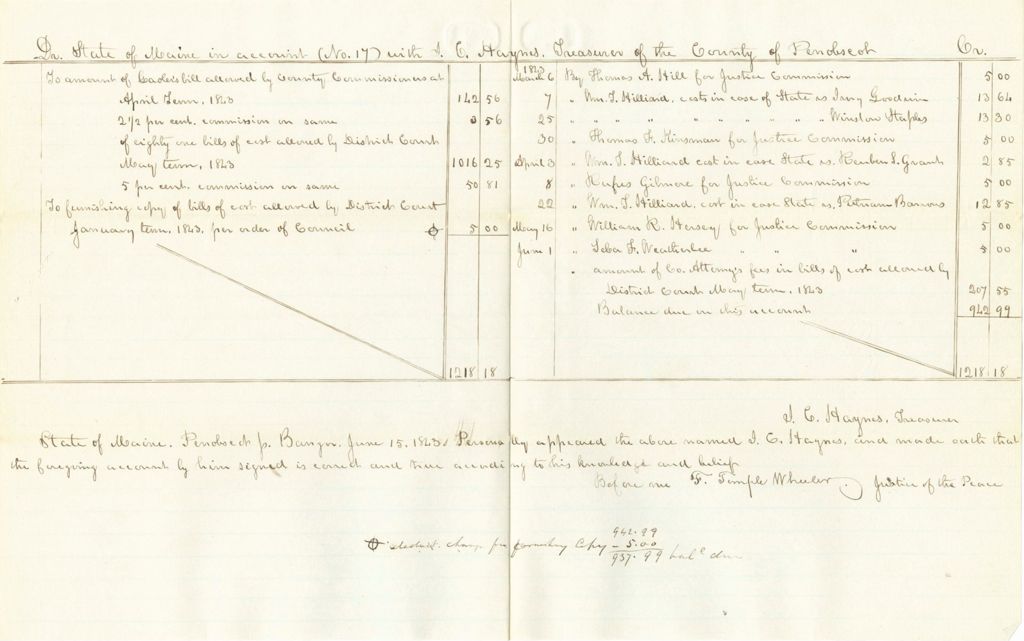 Dr. State of Maine in account (No. 17) with J. C. Haynes, Treasurer of the County of Penobscot Cr.
To amount of Goaler's bill allowed by County Commissioners at
April Term, 1843 142 56
2 1/2 per cent. commission on same 3 56
of eighty one bills of cost allowed by District Court
May term, 1843 1016 25
5 per cent. commission on same 50 81
To furnishing copy of bills of cost allowed by District Court
January term, 1843, per order of Council 5 00
1218 18
1843
March 6 By Thomas A. Hill for Justice Commission 5 00
7 " Wm. T. Hilliard, costs in case of State vs Goodwin 13 64
25 " " " " " " " " " Winslow Staples 13 30
30 " Thomas F. Kinsman for Justice Commission 5 00
April 3 " Wm. T. Hilliard cost in case State vs. Reuben S. Grant 2 85
8 " Rufus Gilmore for Justice Commission 5 00
22 " Wm. T. Hilliard, cost in case State vs. Putnam Barrows 12 85
May 16 " William R. Hersey for Justice Commission 5 00
June 1 " Seba F. Weatherbee " " " 5 00
" amount of Co. Attorney's fees in bills of cost allowed by
District Court May term, 1843 207 55
Balance due on this account 942 99
1218 18
J. C. Haynes, Treasurer
State of Maine. Penobscot ss. Bangor. June 15. 1843. Personally appeared the above named J. C. Haynes, and made oath that
the foregoing account by him signed is correct and true according to his knowledge and belief
Before me F. Temple Wheeler, Justice of the Peace
942.99
deduct charge for furnishing Copy – 5.00
937.99 bal<sup>e</sup> due